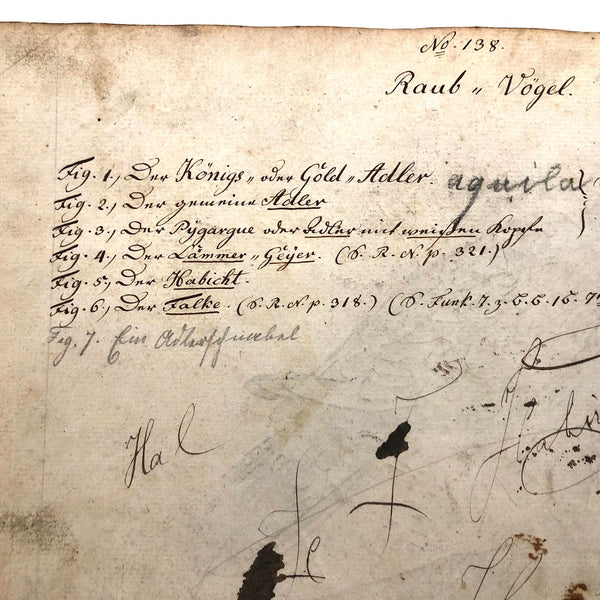 No. 138.
Raub„ Vögel.
Fig. 1., Der Königs„ oder Gold„ Adler. aquila
Fig. 2., Der gemeine Adler
Fig. 3., Der Pÿgargue oder Adler mit weißen Kopfe
Fig. 4., Der Lämmer„ Geÿer. (S. R. N. p. 321.)
Fig. 5., Der Habicht.
Fig. 6., Der Falke. (S. R. N. p. 318.) (S. Funk. 7. z. 5. 6. 15.
Fig. 7. Ein Adlerschnabel
Hal